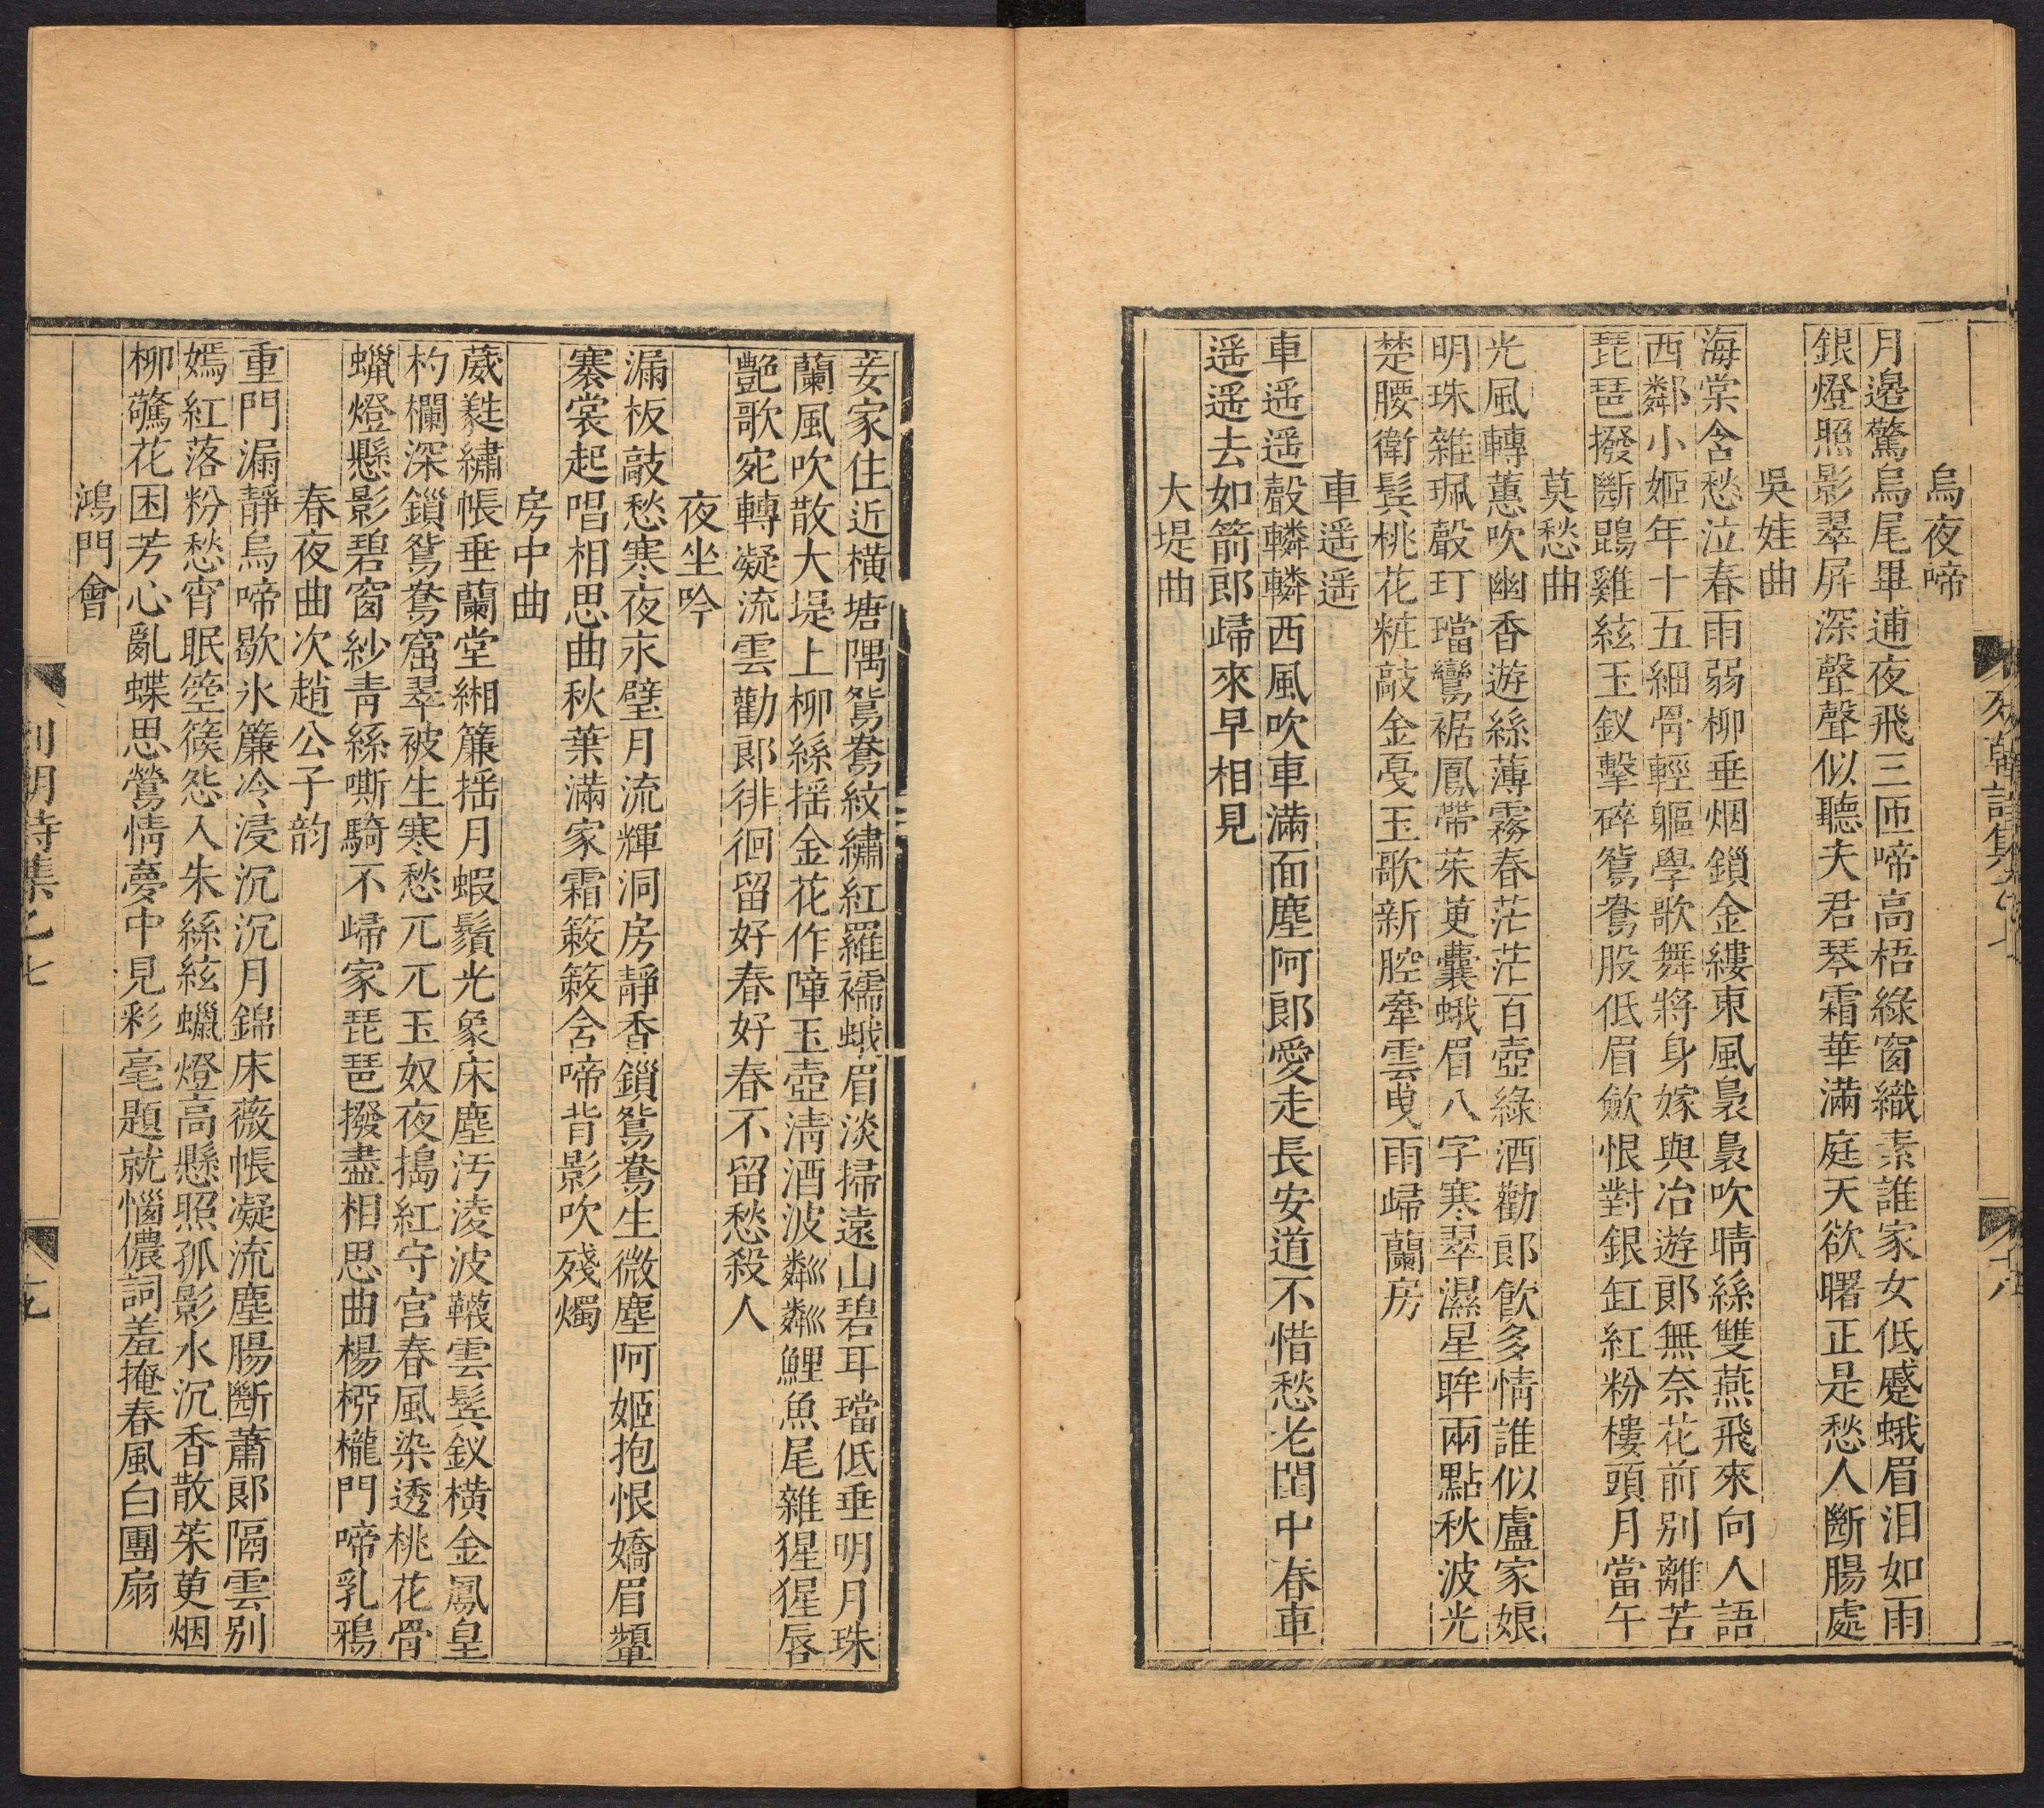 烏夜啼
月邉驚烏尾畢逋夜飛三匝啼高梧綠窗織素誰家女低蹙蛾眉泪如雨
銀燈照影翠屏深聲聲似聽夫君琴霜華滿庭天欲曙正是愁人斷腸處
吳娃曲
海棠含愁泣春雨弱柳垂烟鎖金縷東風裊裊吹晴絲雙燕飛來向人語
西鄰小姬年十五細骨輕軀學歌舞將身嫁與冶遊郎無奈花前别離苦
琵琶撥斷鵾雞絃玉釵擊碎鴛鴦股低眉斂恨對銀缸紅粉樓頭月當午
莫愁曲
光風轉蕙吹幽香遊絲薄霧春茫茫百壺綠酒勸郎飲多情誰似盧家娘
明珠雜珮聲玎璫鸞裾鳳帶茱萸囊蛾眉八字寒翠濕星眸兩點秋波光
楚腰衛鬓桃花粧敲金戞玉歌新腔牽雲曳雨歸蘭房
車遥遥
車遥遥聲轔轔西風吹車滿面塵阿郎愛走長安道不惜愁老閨中春車
遥遥去如箭郎歸來早相見
大堤曲
妾家住近橫塘隅鴛鴦紋繡紅羅襦蛾眉淡掃遠山碧耳璫低垂明月珠
蘭風吹散大堤上柳絲揺金花作障玉壺清酒波粼粼鯉魚尾雜猩猩唇
艷歌宛轉凝流雲勸郎徘徊留好春好春不留愁殺人
夜坐吟
漏板敲愁寒夜永璧月流輝洞房靜香鎖鴛鴦生微塵阿姬抱恨嬌眉顰
褰裳起唱相思曲秋葉滿家霜簌簌含啼背影吹殘燭
房中曲
葳蕤繡帳垂蘭堂緗簾揺月蝦鬚光象床塵汚淩波韈雲髩釵橫金鳳皇
杓欄深鎖鴛鴦窟翠被生寒愁兀兀玉奴夜搗紅守宫春風染透桃花骨
蠟燈懸影碧窗紗青絲嘶騎不歸家琵琶撥盡相思曲楊桺櫳門啼乳鴉
春夜曲次趙公子韵
重門漏靜烏啼歇氷簾冷浸沉沉月錦床薇帳凝流塵腸斷蕭郎隔雲别
嫣紅落粉愁宵眠箜篌怨入朱絲絃蠟燈高懸照孤影水沉香散茱萸烟
柳驚花困芳心亂蝶思鶯情夢中見彩毫題就惱儂詞羞掩春風白團扇
鴻門會